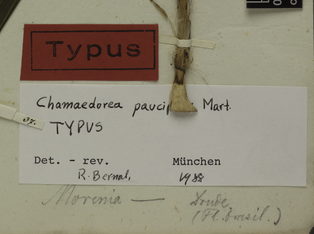 Typus
Chamaedorea pauci Mart.
TYPUS
Det. - rev. München
R. Bernal, 1988
Morenia — Drude